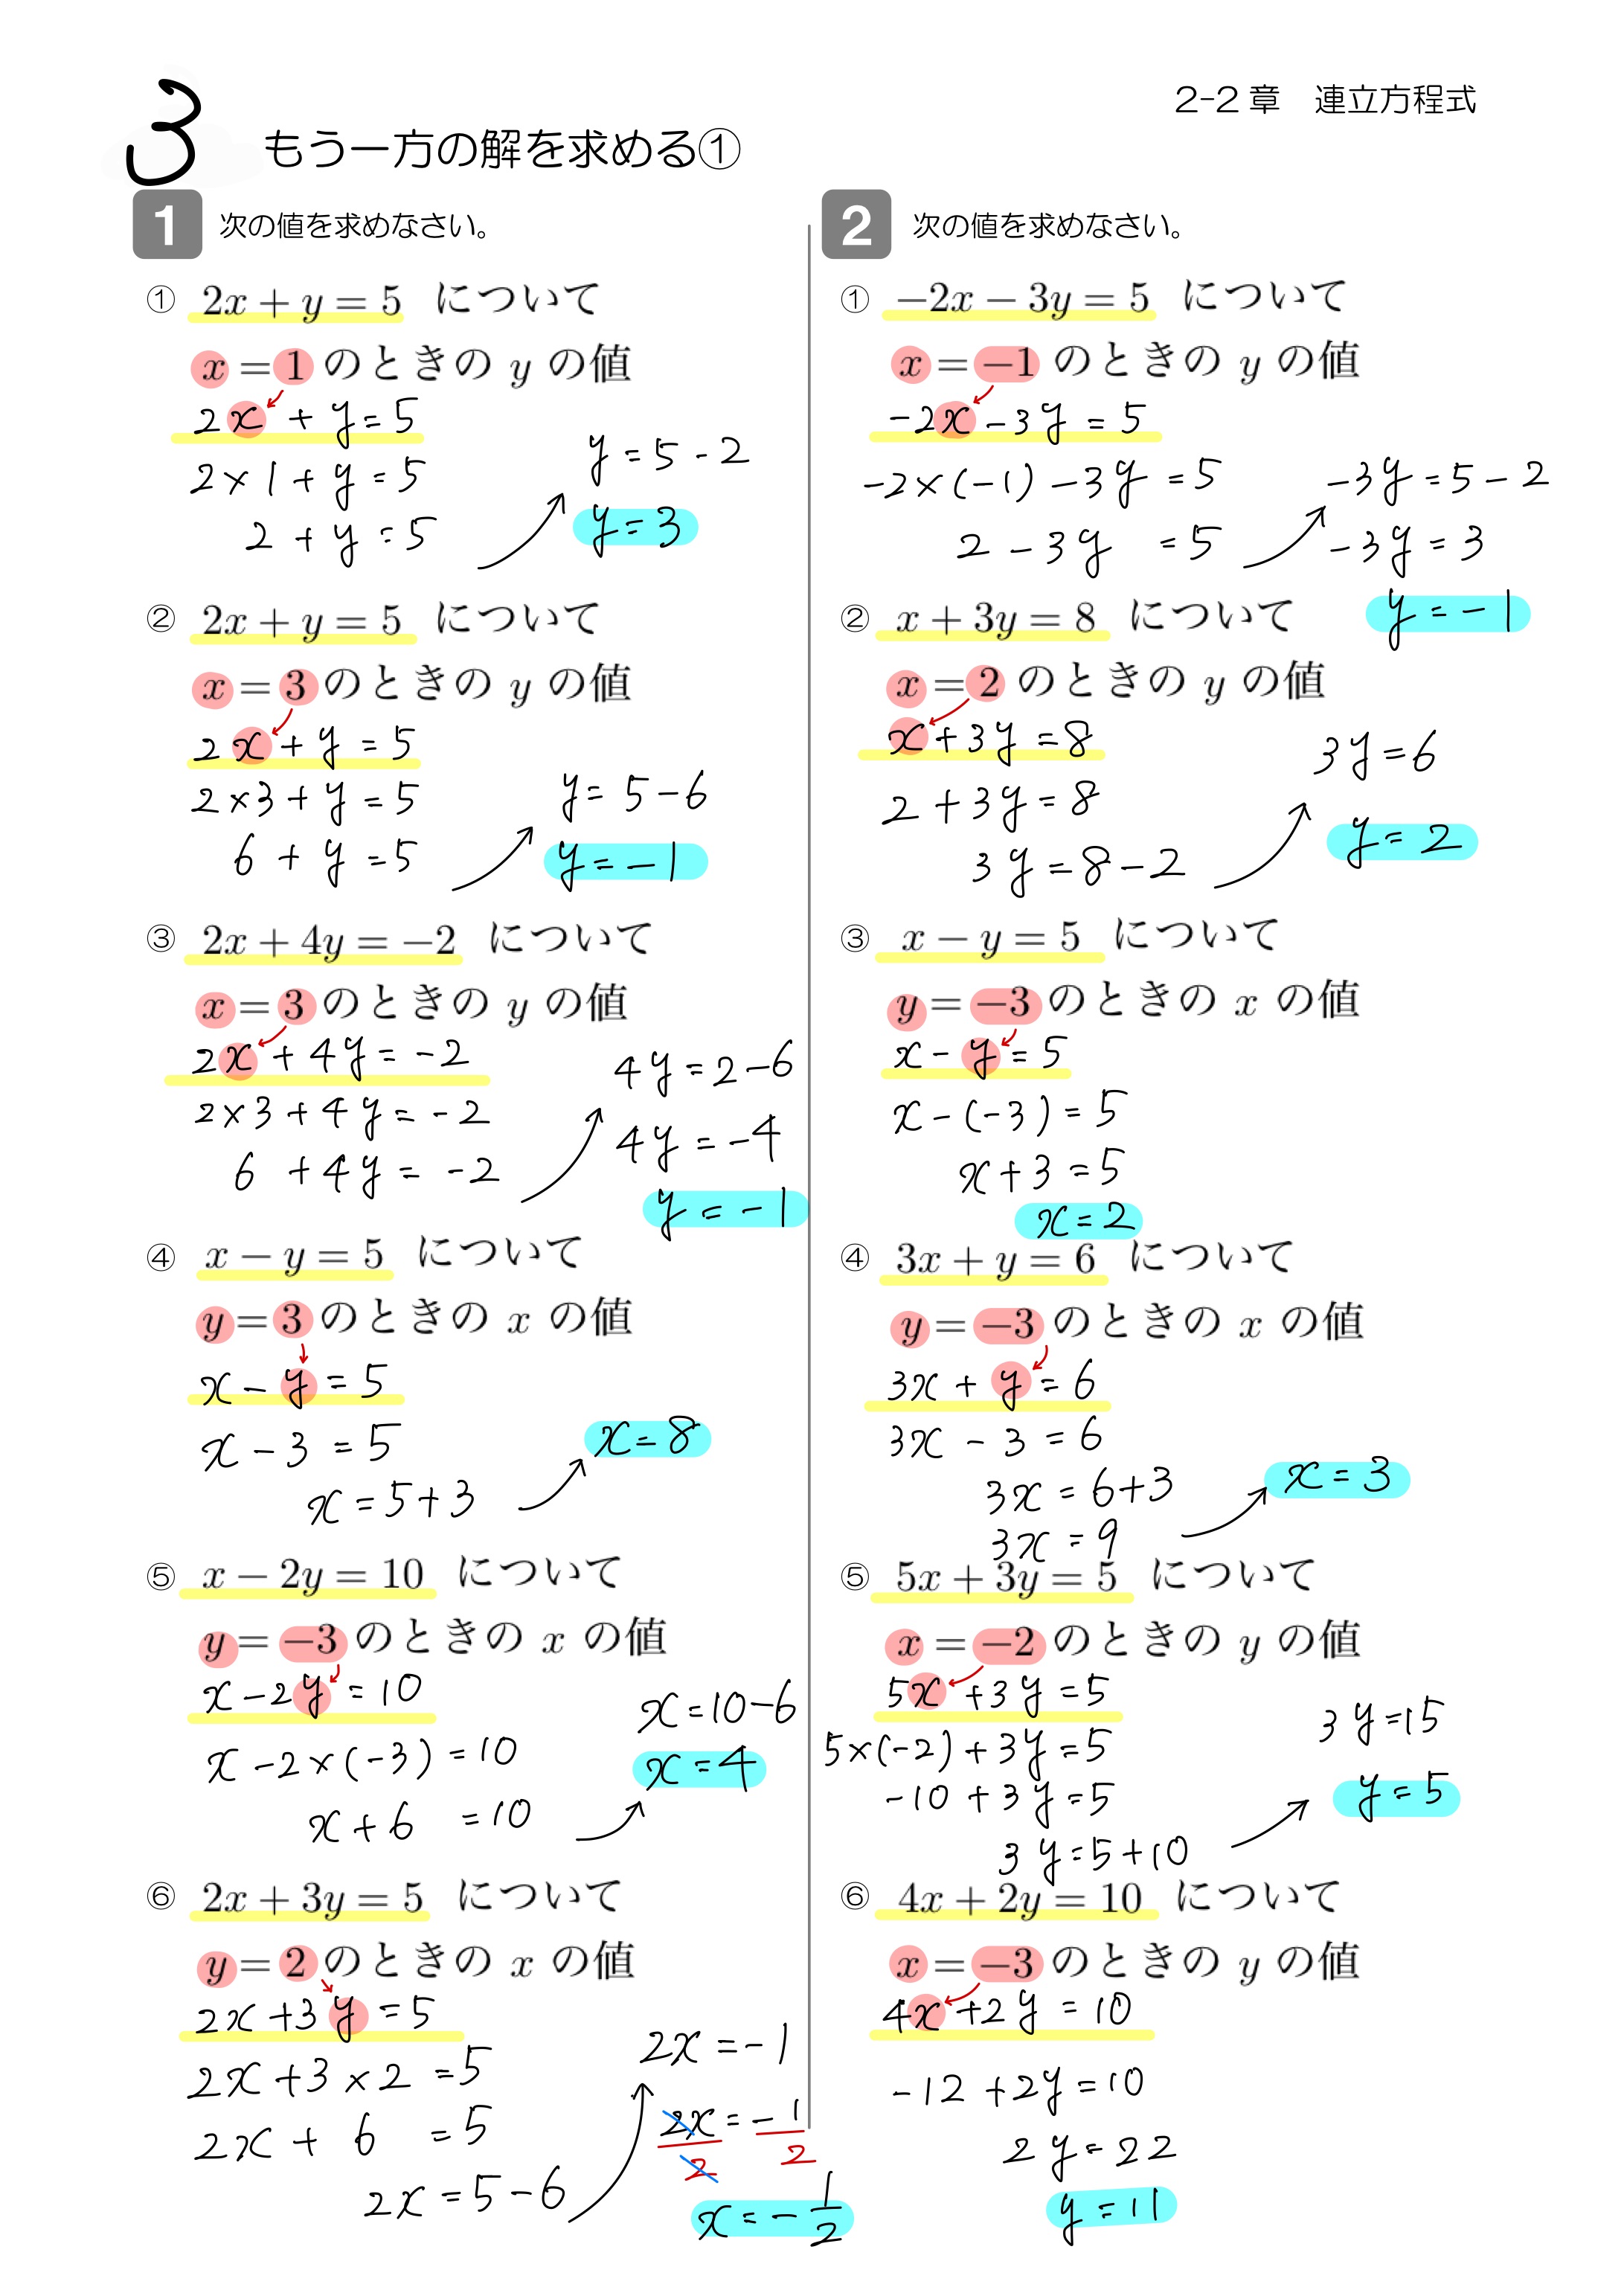 2-2章 連立方程式
3 もう一方の解を求める①
1 次の値を求めなさい。
① 2x + y = 5 について
x = 1 のときの y の値
2x + y = 5
2 × 1 + y = 5
2 + y = 5
y = 5 - 2
y = 3
② 2x + y = 5 について
x = 3 のときの y の値
2x + y = 5
2 × 3 + y = 5
6 + y = 5
y = 5 - 6
y = -1
③ 2x + 4y = -2 について
x = 3 のときの y の値
2x + 4y = -2
2 × 3 + 4y = -2
6 + 4y = -2
4y = 2 - 6
4y = -4
y = -1
④ x - y = 5 について
y = 3 のときの x の値
x - y = 5
x - 3 = 5
x = 5 + 3
x = 8
⑤ x - 2y = 10 について
y = -3 のときの x の値
x - 2y = 10
x - 2 × (-3) = 10
x + 6 = 10
x = 10 - 6
x = 4
⑥ 2x + 3y = 5 について
y = 2 のときの x の値
2x + 3y = 5
2x + 3 × 2 = 5
2x + 6 = 5
2x = 5 - 6
2x = -1
2x/2 = -1/2
x = -1/2
2 次の値を求めなさい。
① -2x - 3y = 5 について
x = -1 のときの y の値
-2x - 3y = 5
-2 × (-1) - 3y = 5
2 - 3y = 5
-3y = 5 - 2
-3y = 3
y = -1
② x + 3y = 8 について
x = 2 のときの y の値
x + 3y = 8
2 + 3y = 8
3y = 8 - 2
3y = 6
y = 2
③ x - y = 5 について
y = -3 のときの x の値
x - y = 5
x - (-3) = 5
x + 3 = 5
x = 2
④ 3x + y = 6 について
y = -3 のときの x の値
3x + y = 6
3x - 3 = 6
3x = 6 + 3
3x = 9
x = 3
⑤ 5x + 3y = 5 について
x = -2 のときの y の値
5x + 3y = 5
5 × (-2) + 3y = 5
-10 + 3y = 5
3y = 5 + 10
3y = 15
y = 5
⑥ 4x + 2y = 10 について
x = -3 のときの y の値
4x + 2y = 10
-12 + 2y = 10
2y = 22
y = 11